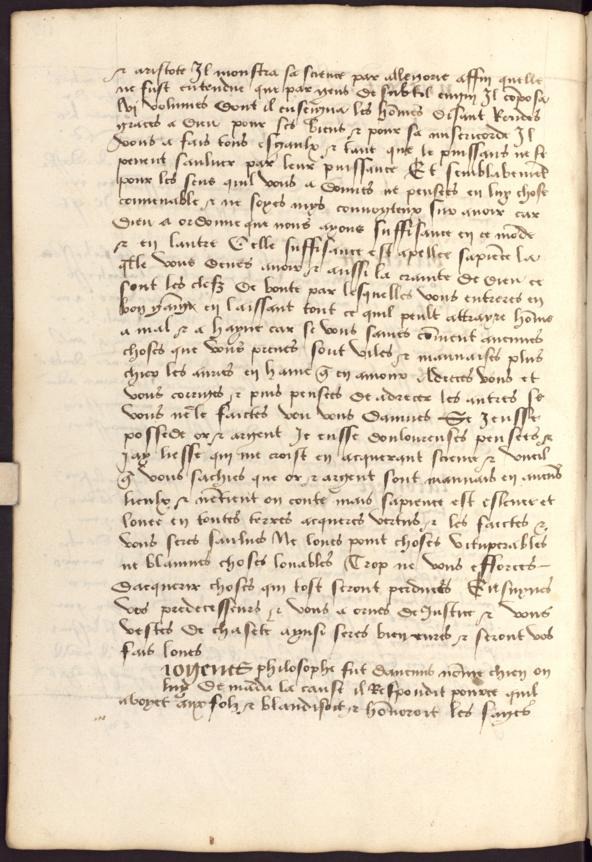 & aristote Il monstra sa science par allegorie affin quelle
ne fust entendue que par gens de subtil engin Il cōposa
lvj volumes dont il enseigna les hōmes disant Rendes
graces a dieu pour ses biens & pour sa misericorde Il
vous a fais tous esgaulx & tant que le puissans ne se
peuent saulver par leur puissance Et semblablemēt
pour les sens quil vous a donnes ne penses en luy chose
conuenable & ne soyes mys conuoyteux sur auoir car
dieu a ordonne que nous ayons suffisance en ce mōde
& en lautre Celle suffisance est apellee sapiēce la
qlle vous deues auoir & aussi la crainte de dieu ce
sont les clefz de bonte par lesquelles vous entreres en
bon en laissant tout ce quil peult attrayre hōme
a mal & a hayne car se vous saues cōment aucunes
choses que vous prenes sont viles & mauuaises plus
chier les aures en haine q en amour Adreces vous et
vous corriges & puis penses de adrecer les autres se
vous ne le faictes vous dampnes Se Jeusse
possede or & argent Je eusse douloureuses pensees &
Jay liesse qui me croist en acquerant science & vueil
q vous sachies que or & argent sont mauuais en aucūs
lieulx & nētient on conte mais sapience est eslevee et
louee en toutes terres acqueres vertus & les faictes &
vous seres saulus Ne loues point choses vituperables
ne blasmes choses louables Trop ne vous efforces
dacquerir choses qui tost seront perdues Ensuyues
vos predecesseurs & vous a ornes de Justice & vous
vestes de chastete aynsi seres bien eures & seront vos
fais loues
iogenes philosophe fut daucuns nōme chien on
luy demāda la cause il Respondit pource quil
aboyet aux folz & blandisoit & hōnoroit les sages